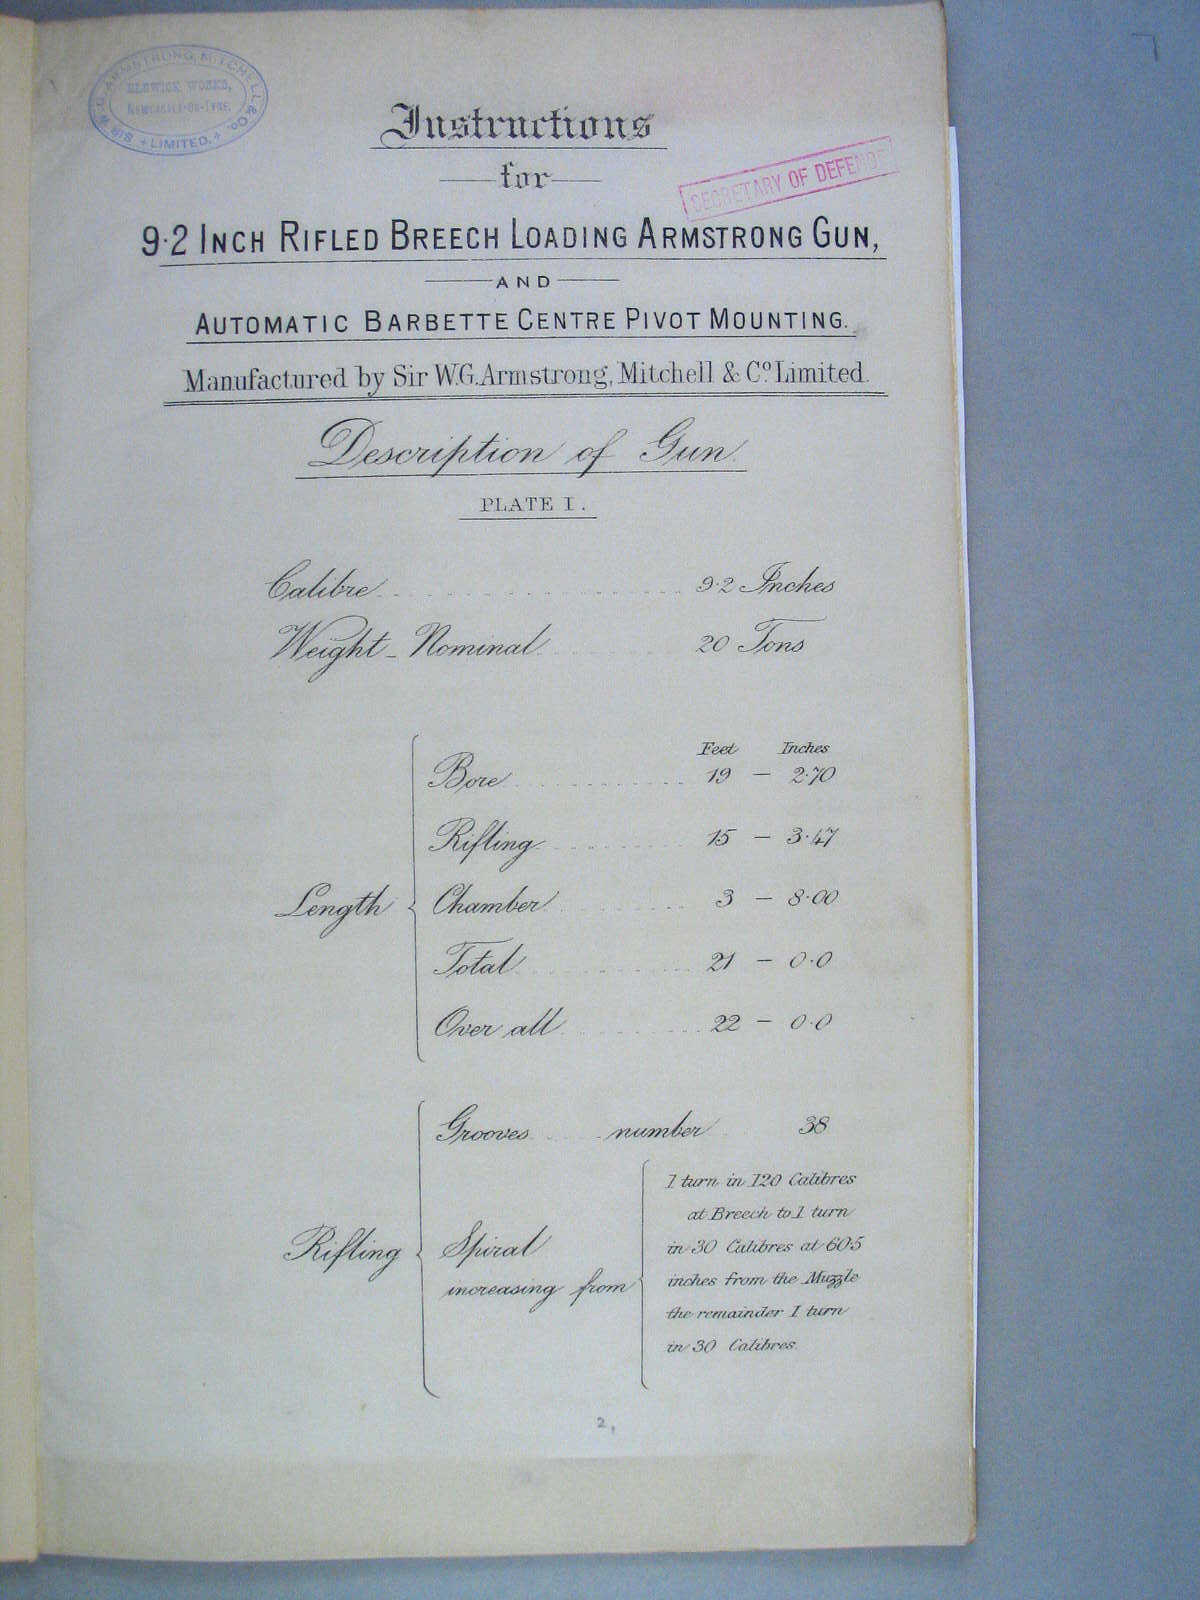 SIR W.G. ARMSTRONG, MITCHELL & Co. LIMITED.
ELSWICK WORKS,
NEWCASTLE-ON-TYNE.
Instructions
for
SECRETARY OF DEFENCE
9·2 INCH RIFLED BREECH LOADING ARMSTRONG GUN,
AND
AUTOMATIC BARBETTE CENTRE PIVOT MOUNTING.
Manufactured by Sir W.G. Armstrong, Mitchell & Co. Limited.
Description of Gun.
PLATE I.
Calibre 9·2 Inches
Weight - Nominal 20 Tons
Feet Inches
Bore 19 — 2·70
Rifling 15 — 3·47
Length Chamber 3 — 8·00
Total 21 — 0·0
Over all 22 — 0·0
Grooves number 38
1 turn in 120 Calibres
at Breech to 1 turn
Rifling Spiral in 30 Calibres at 60·5
increasing from inches from the Muzzle
the remainder 1 turn
in 30 Calibres.
2,